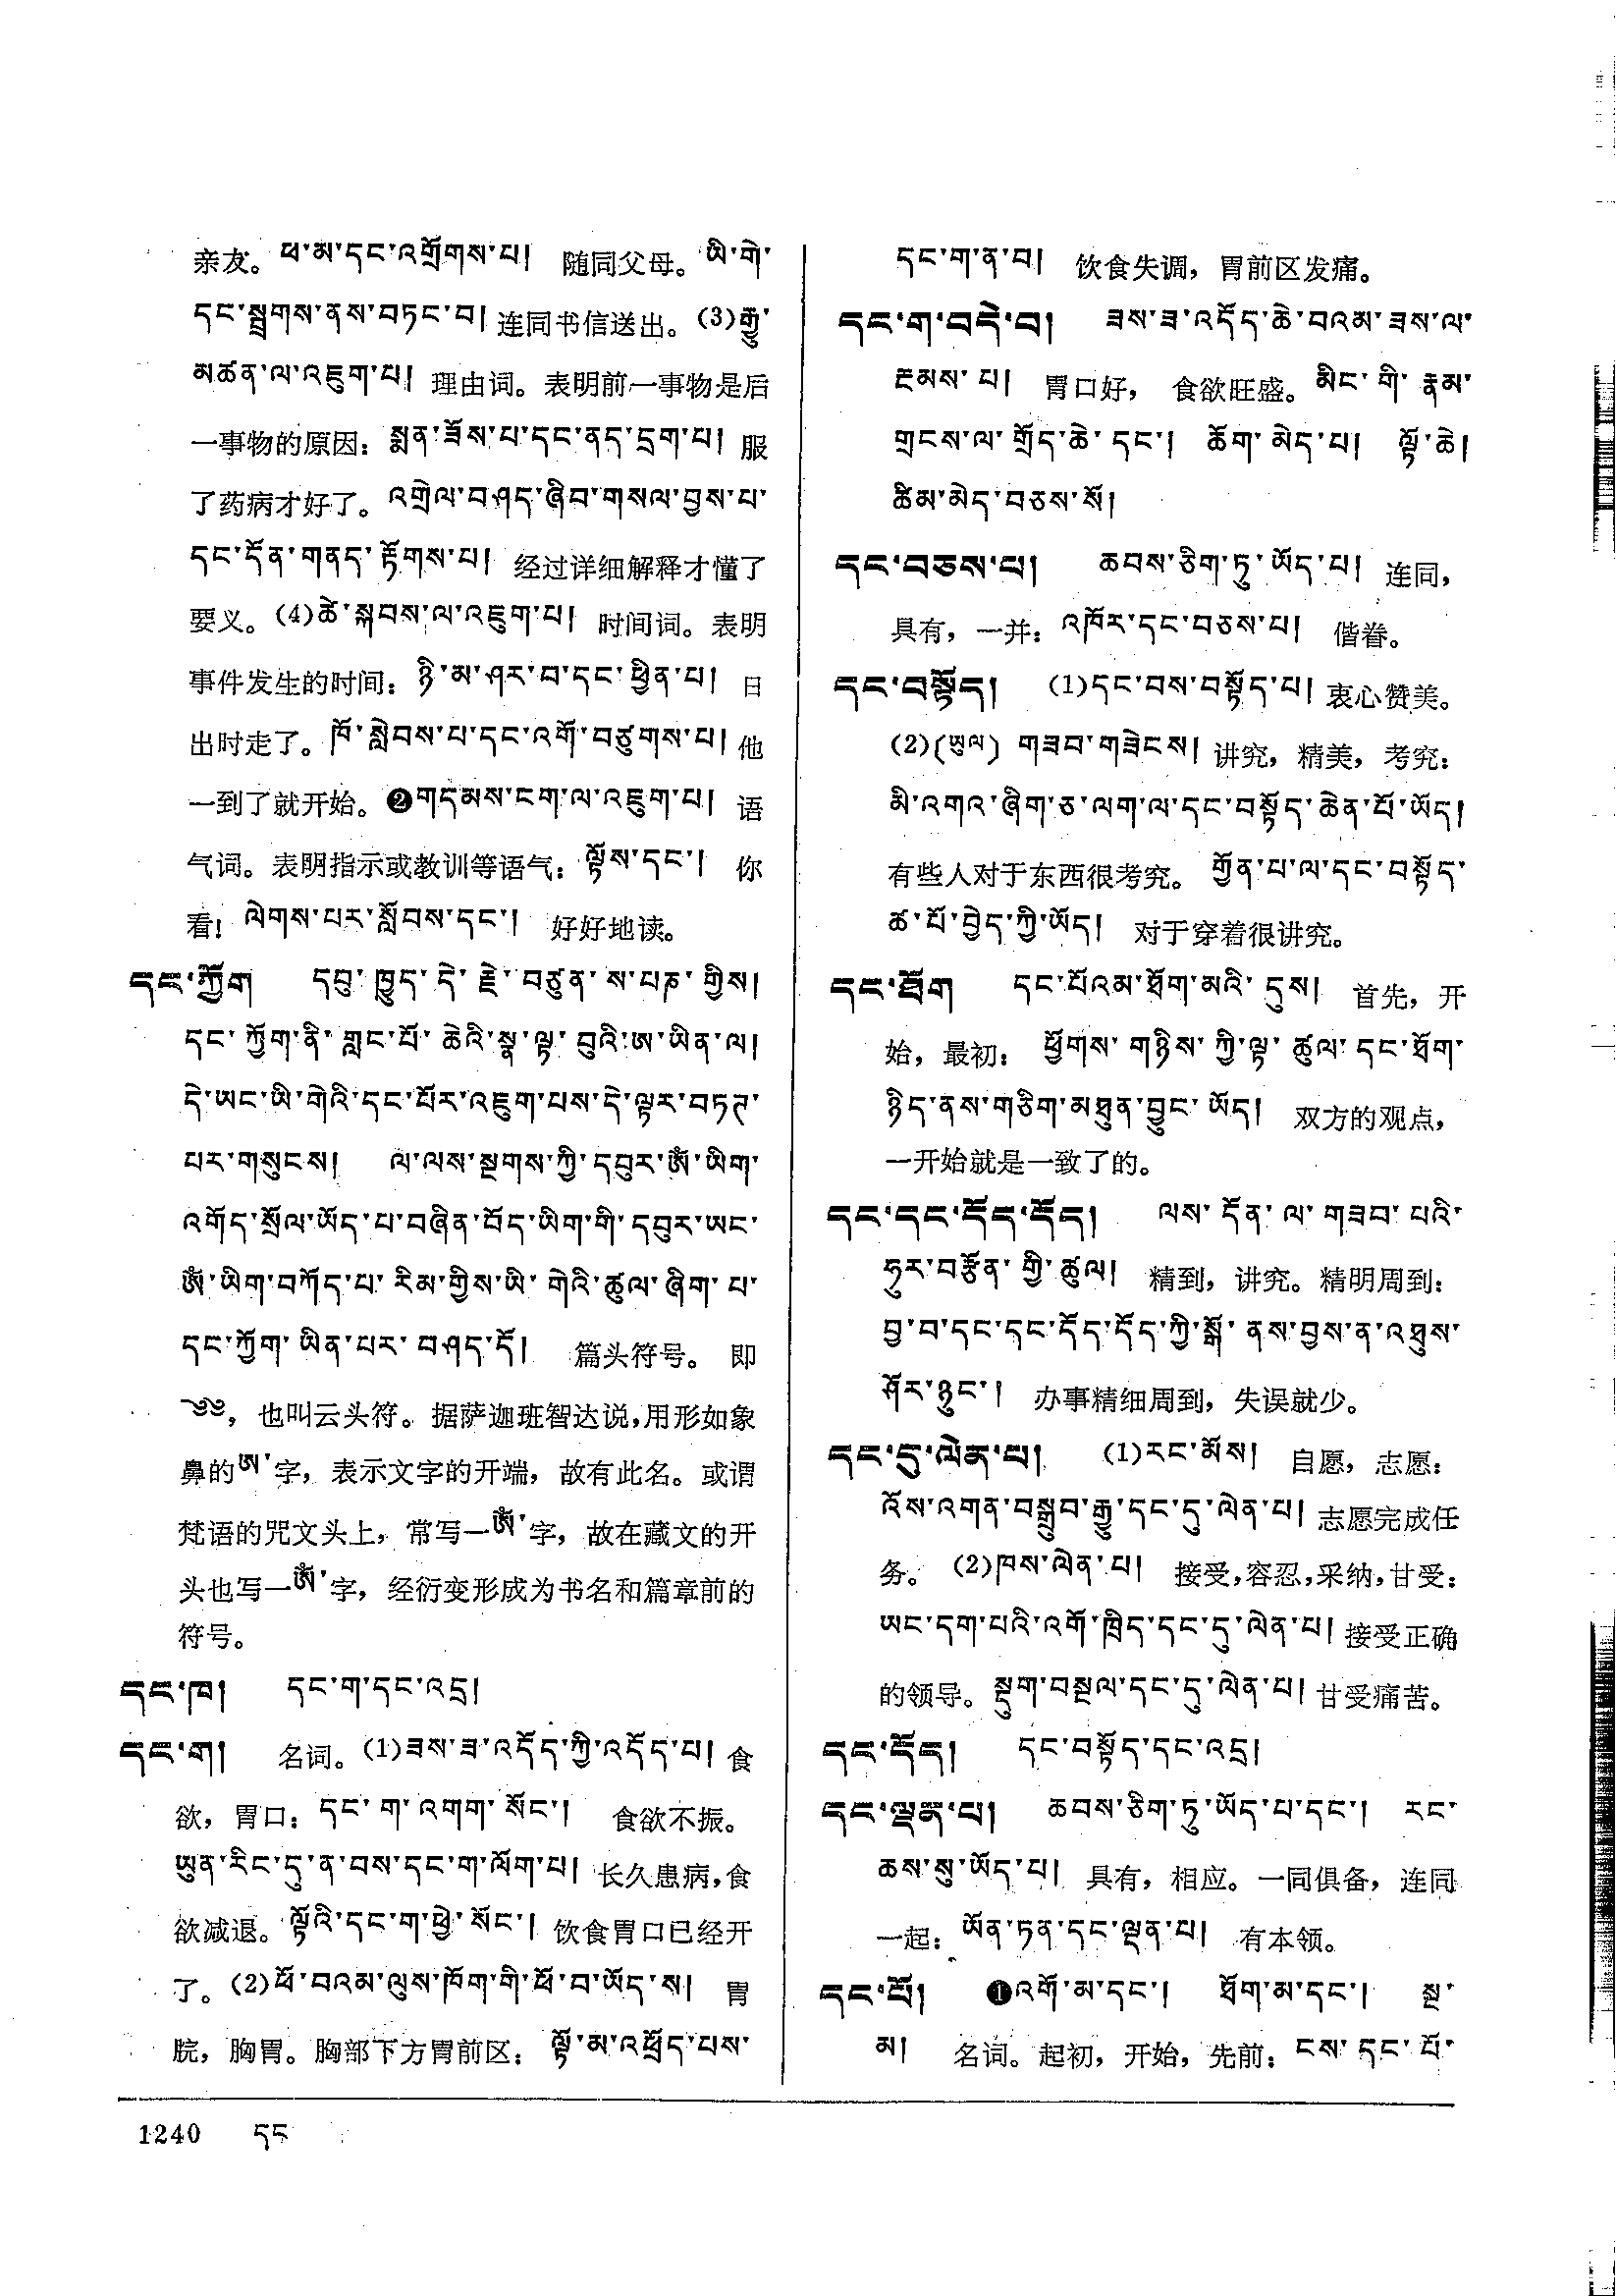 亲友。ཕ་མ་དང་འགྲོགས་པ། 随同父母。ཡི་གེ་
དང་སྦྲགས་ནས་བཏང་བ། 连同书信送出。(3)རྒྱུ་
མཚན་ལ་འཇུག་པ། 理由词。表明前一事物是后
一事物的原因：སྨན་ཟོས་པ་དང་ནད་དྲག་པ། 服
了药病才好了。འགྲེལ་བཤད་ཞིབ་གསལ་བྱས་པ་
དང་དོན་གནད་རྟོགས་པ། 经过详细解释才懂了
要义。(4)ཚེ་སྐབས་ལ་འཇུག་པ། 时间词。表明
事件发生的时间：ཉི་མ་ཤར་བ་དང་ཕྱིན་པ། 日
出时走了。ཁོ་སླེབས་པ་དང་འགོ་བཙུགས་པ། 他
一到了就开始。❷གདམས་ངག་ལ་འཇུག་པ། 语
气词。表明指示或教训等语气：ལྟོས་དང་། 你
看！ལེགས་པར་སློབས་དང་། 好好地读。
དང་ཀྱོག དབུ་ཁྱུད་དེ་རྗེ་བཙུན་ས་པཎ་གྱིས།
དང་ཀྱོག་ནི་གླང་པོ་ཆེའི་སྣ་ལྟ་བུའི་ཨ་ཡིན་ལ།
དེ་ཡང་ཡི་གེའི་དང་པོར་འཇུག་པས་དེ་ལྟར་བཏད་
པར་གསུངས། ལ་ལས་སྔགས་ཀྱི་དབུར་ༀ་ཡིག་
འགོད་སྲོལ་ཡོད་པ་བཞིན་བོད་ཡིག་གི་དབུར་ཡང་
ༀ་ཡིག་བཀོད་པ་རིམ་གྱིས་ཡི་གེའི་ཚུལ་ཞིག་པ་
དང་ཀྱོག་ཡིན་པར་བཤད་དོ། 篇头符号。即
༄༅，也叫云头符。据萨迦班智达说，用形如象
鼻的ཨ་字，表示文字的开端，故有此名。或谓
梵语的咒文头上，常写一ༀ་字，故在藏文的开
头也写一ༀ་字，经衍变形成为书名和篇章前的
符号。
དང་ཁ། དང་ག་དང་འདྲ།
དང་ག། 名词。(1)ཟས་ཟ་འདོད་ཀྱི་འདོད་པ། 食
欲，胃口：དང་ག་འགག་སོང་། 食欲不振。
ཡུན་རིང་དུ་ན་བས་དང་ག་ལོག་པ། 长久患病，食
欲减退。ལྟོའི་དང་ག་ཕྱེ་སོང་། 饮食胃口已经开
了。(2)ཕོ་བའམ་ལུས་ཁོག་གི་ཕོ་བ་ཡོད་ས། 胃
脘，胸胃。胸部下方胃前区：ལྟོ་མ་འཕྲོད་པས་
དང་ག་ན་བ། 饮食失调，胃前区发痛。
དང་ག་བདེ་བ། ཟས་ཟ་འདོད་ཆེ་བའམ་ཟས་ལ་
རྔམས་པ། 胃口好，食欲旺盛。མིང་གི་རྣམ་
གྲངས་ལ་གྲོད་ཆེ་དང་། ཆོག་མེད་པ། ལྟོ་ཆེ།
ཚིམ་མེད་བཅས་སོ།
དང་བཅས་པ། ཆབས་ཅིག་ཏུ་ཡོད་པ། 连同，
具有，一并：འཁོར་དང་བཅས་པ། 偕眷。
དང་བསྟོད། (1)དང་བས་བསྟོད་པ། 衷心赞美。
(2)(ཡུལ) གཟབ་གཟེངས། 讲究，精美，考究：
མི་འགའ་ཞིག་ཅ་ལག་ལ་དང་བསྟོད་ཆེན་པོ་ཡོད།
有些人对于东西很考究。གྱོན་པ་ལ་དང་བསྟོད་
ཚ་པོ་བྱེད་ཀྱི་ཡོད། 对于穿着很讲究。
དང་ཐོག དང་པོའམ་ཐོག་མའི་དུས། 首先，开
始，最初：ཕྱོགས་གཉིས་ཀྱི་ལྟ་ཚུལ་དང་ཐོག་
ཉིད་ནས་གཅིག་མཐུན་བྱུང་ཡོད། 双方的观点，
一开始就是一致了的。
དང་དང་དོད་དོད། ལས་དོན་ལ་གཟབ་པའི་
ཧུར་བརྩོན་གྱི་ཚུལ། 精到，讲究。精明周到：
བྱ་བ་དང་དང་དོད་དོད་ཀྱི་སྒོ་ནས་བྱས་ན་འཐུས་
ཤོར་ཉུང་། 办事精细周到，失误就少。
དང་དུ་ལེན་པ། (1)རང་མོས། 自愿，志愿：
འོས་འགན་བསྒྲུབ་རྒྱུ་དང་དུ་ལེན་པ། 志愿完成任
务。(2)ཁས་ལེན་པ། 接受，容忍，采纳，甘受：
ཡང་དག་པའི་འགོ་ཁྲིད་དང་དུ་ལེན་པ། 接受正确
的领导。སྡུག་བསྔལ་དང་དུ་ལེན་པ། 甘受痛苦。
དང་དོད། དང་བསྟོད་དང་འདྲ།
དང་ལྡན་པ། ཆབས་ཅིག་ཏུ་ཡོད་པ་དང་། རང་
ཆས་སུ་ཡོད་པ། 具有，相应。一同俱备，连同
一起：ཡོན་ཏན་དང་ལྡན་པ། 有本领。
དང་པོ། ❶འགོ་མ་དང་། ཐོག་མ་དང་། སྔ་
མ། 名词。起初，开始，先前：ངས་དང་པོ་
1240 དང